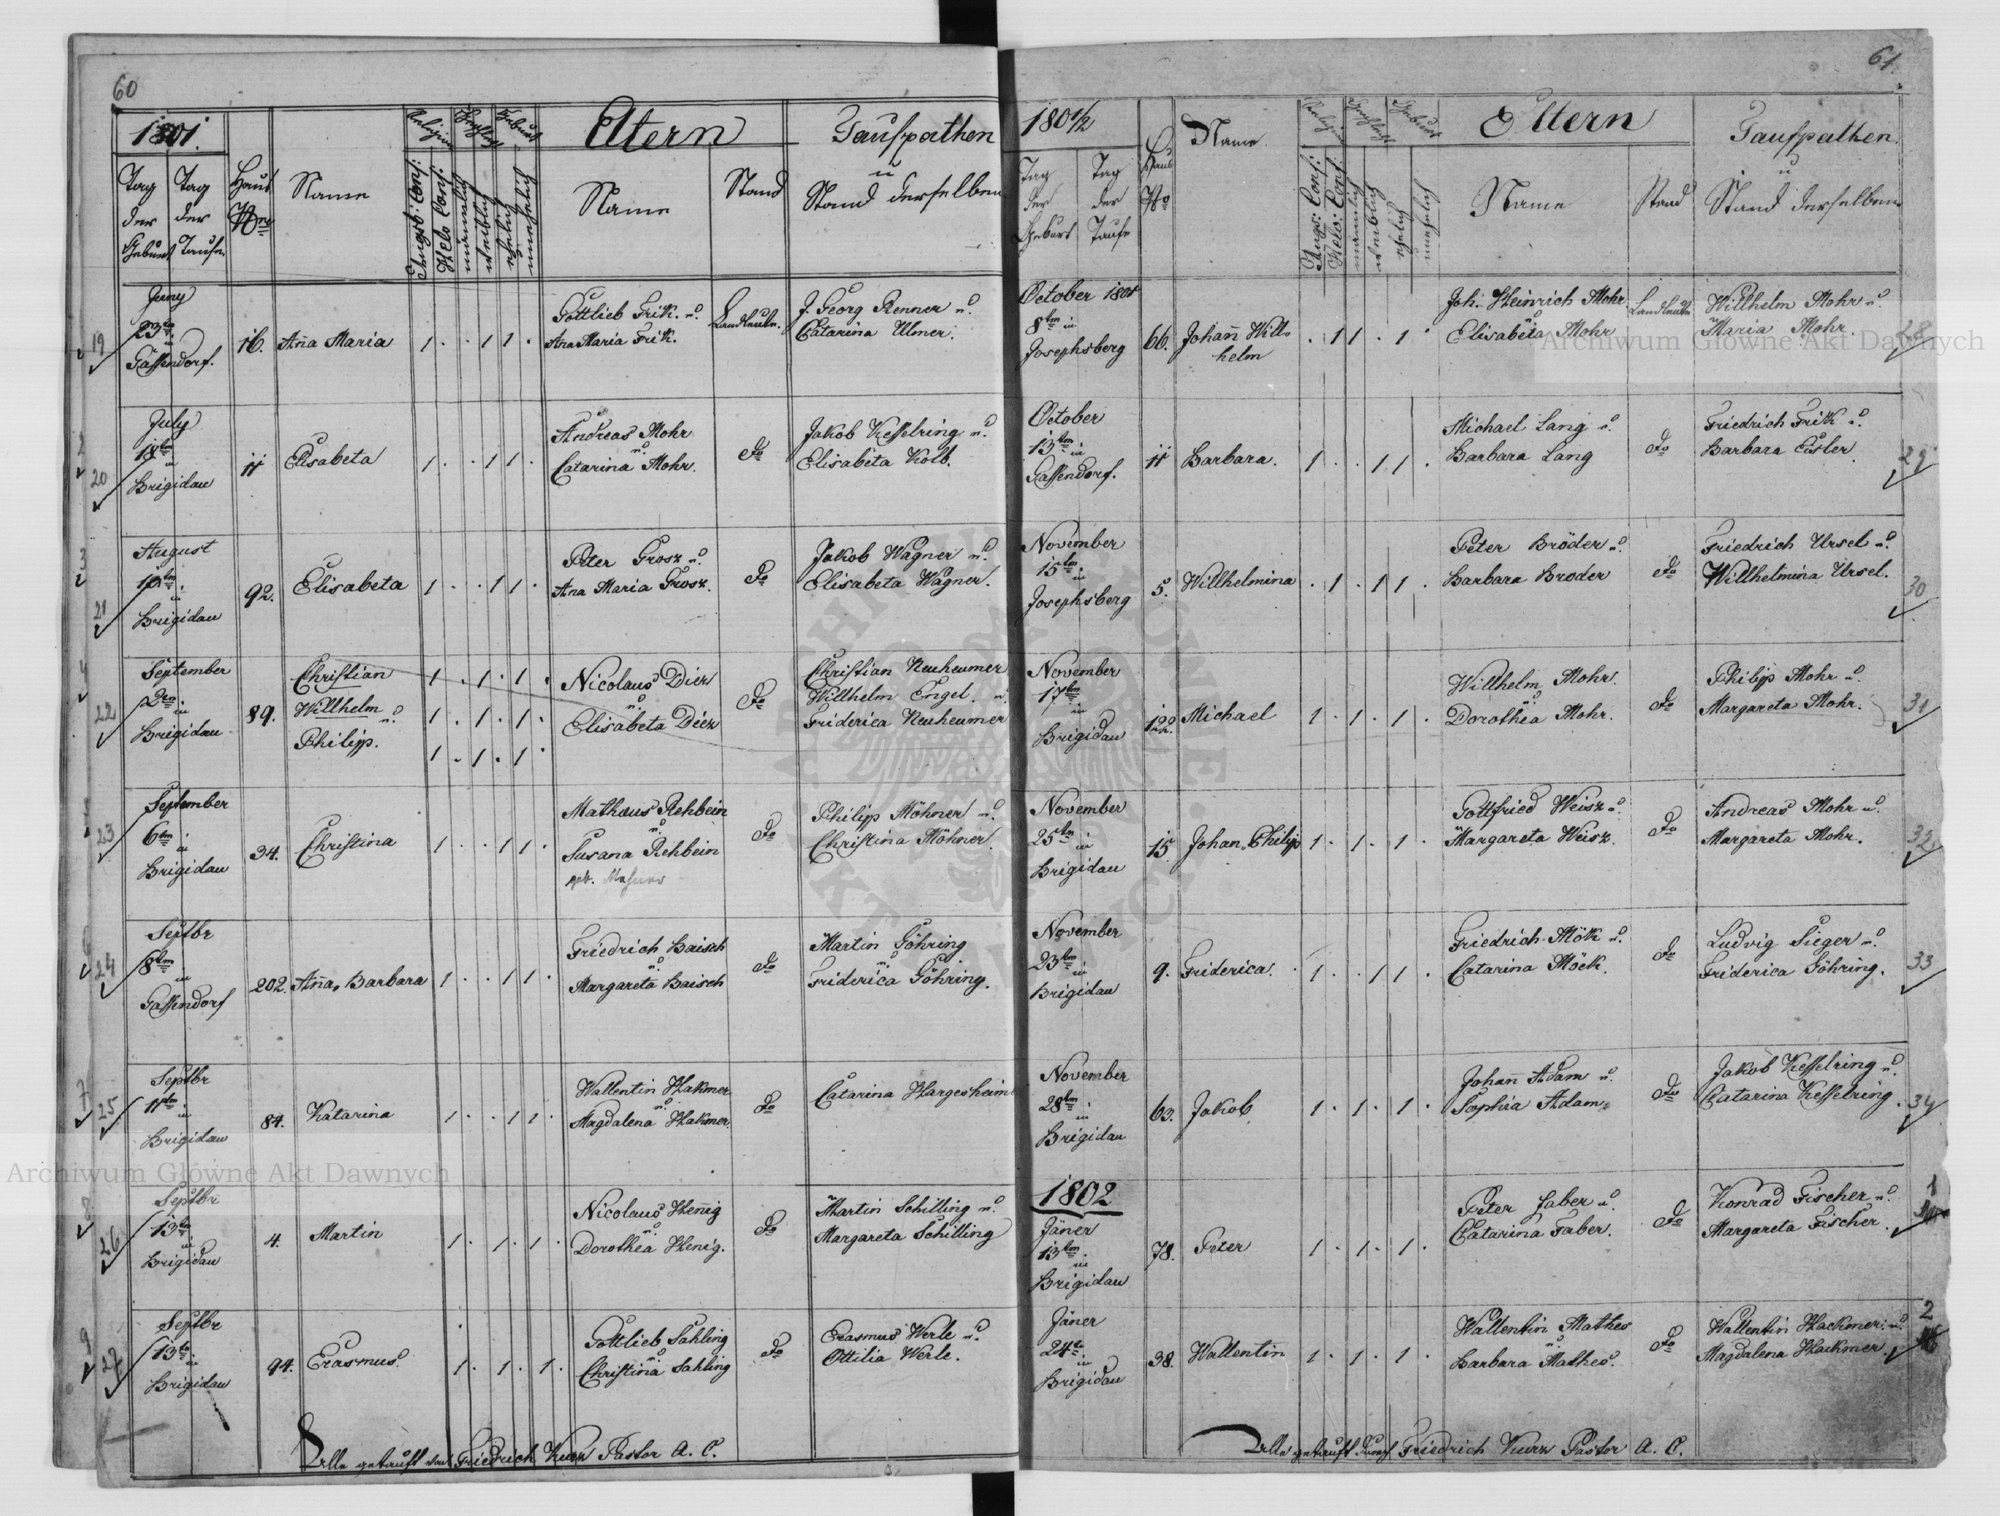 60
1801.
Tag der Geburt
Tag der Taufe
Haus Nro
Name
Religion
Geschlecht
Geburt
Augsb: Conf:
Helv Conf:
männlich
weiblich
ehelich
unehelich
Eltern
Name
Stand
Taufpathen
u
Stand derselben
19
Juny
23tn
in
Gassendorf.
16.
Aña Maria
1 . . 1 1 .
Gottlieb Frik. u.
Ana Maria Frik.
Landleute.
J. Georg Renner u.
Catarina Ulmer.
20
July
18tn
in
Brigidau
11
Elisabeta
1 . . 1 1 .
Andreas Mohr
u.
Catarina Mohr.
do
Jakob Kesselring u.
Elisabeta Kolb.
21
August
10tn
in
Brigidau
92.
Elisabeta
1 . . 1 1 .
Peter Grosz u.
Ana Maria Grosz.
do
Jakob Wagner u.
Elisabeta Wagner.
22
September
2tn
in
Brigidau
89.
Christian
Willhelm
u.
Philipp.
1 . 1 . 1 .
1 . 1 . 1 .
1 . 1 . 1 .
Nicolaus Diez
u.
Elisabeta Diez
do
Christian Neuheumer
Willhelm Engel. u.
Friderica Neuheumer
23
September
6tn
in
Brigidau
34.
Christina
1 . . 1 1 .
Mathaus Rehbein
u.
Susana Rehbein
geb.
do
Philipp Möhner u.
Christina Möhner.
24
Septbr
8tn
in
Gassendorf
202.
Aña, Barbara
1 . . 1 1 .
Friedrich Baisch
u.
Margareta Baisch
do
Martin Göhring
u.
Friderica Göhring.
25
Septbr
11tn
in
Brigidau
84.
Katarina
1 . . 1 1 .
Wallentin Hakmer
u.
Magdalena Hakmer.
do
Catarina Hargesheim
26
Septbr
13tn
in
Brigidau
4.
Martin
1 . 1 . 1 .
Nicolaus Heñig
u.
Dorothea Henig.
do
Martin Schilling u.
Margareta Schilling
27
Septbr
13tn
in
Brigidau
94.
Erasmus.
1 . 1 . 1 .
Gottlieb Sahling
u.
Christina Sahling
do
Erasmus Werle u.
Ottilia Werle.
Alle getauft von Friedrich Kurz Pastor A. C.
61.
1801/2
Tag der Geburt
Tag der Taufe
Haus No
Name
Religion
Geschlecht
Geburt
Augs: Conf:
Helv: Conf:
männlich
weiblich
ehelich
unehelich
Eltern
Name
Stand
Taufpathen.
u
Stand derselben
October 1801
8tn in
Josephsberg
66.
Johañ Will-
helm
. 1 1 . 1 .
Joh. Heinrich Mohr
u.
Elisabeta Mohr
Landleute
Willhelm Mohr u.
Maria Mohr.
28
October
13tn
in
Gassendorf.
11
Barbara.
1 . . 1 1 .
Michael Lang u.
Barbara Lang
do
Friedrich Frik u.
Barbara Eisler
29
November
15tn
in
Josephsberg
5.
Willhelmina
. 1 . 1 1 .
Peter Bröder u.
Barbara Broder
do
Friedrich Ursel u.
Willhelmina Ursel.
30
November
17tn
in
Brigidau
122.
Michael
1 . 1 . 1 .
Willhelm Mohr
u.
Dorothea Mohr.
do
Philipp Mohr u.
Margareta Mohr.
31
November
25tn
in
Brigidau
15.
Johan, Philip
1 . 1 . 1 .
Gottfried Weisz u.
Margareta Weisz.
do
Andreas Mohr u.
Margareta Mohr.
32.
November
23tn
in
Brigidau
9.
Friderica.
1 . . 1 1 .
Friedrich Mök u.
Catarina Möck.
do
Ludvig Sieger u.
Friderica Göhring.
33
November
28tn
in
Brigidau
63.
Jakob
1 . 1 . 1 .
Johañ Adam u.
Sophia Adam.
do
Jakob Kesselring u.
Catarina Kesselring.
34
1802
Jäner
13tn
in
Brigidau
78.
Peter
1 . 1 . 1 .
Peter Faber u.
Catarina Faber.
do
Konrad Fischer u.
Margareta Fischer.
1
Jäner
24tn
in
Brigidau
38.
Wallentin
1 . 1 . 1 .
Wallentin Mathes
u.
Barbara Mathes.
do
Wallentin Hackmer. u.
Magdalena Hackmer
2
Alle getauft durch Friedrich Kurz Pastor A. C.
Archiwum Główne Akt Dawnych
Archiwum Główne Akt Dawnych